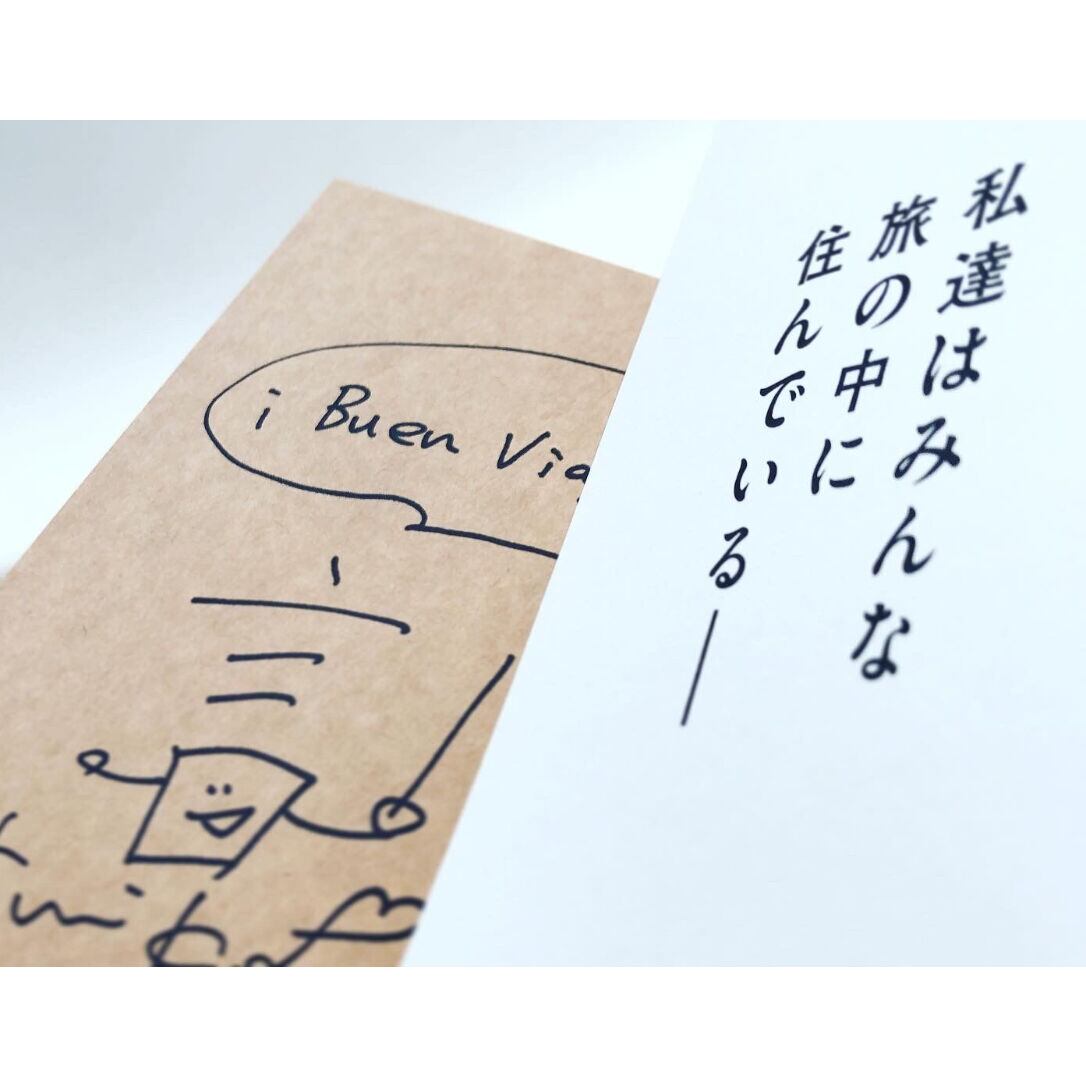 私達はみんな
旅の中に
住んでいる—
¡ Buen